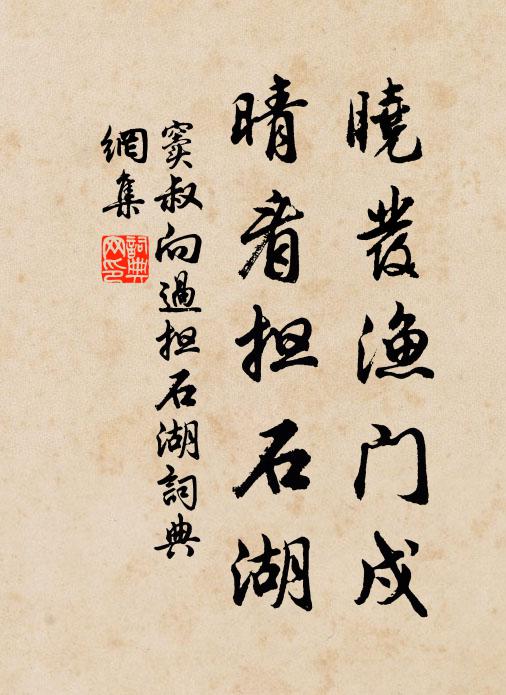 曉發渔门戍
晴看担石湖
窦叔向過担石湖詞典
網集
詞典
网印